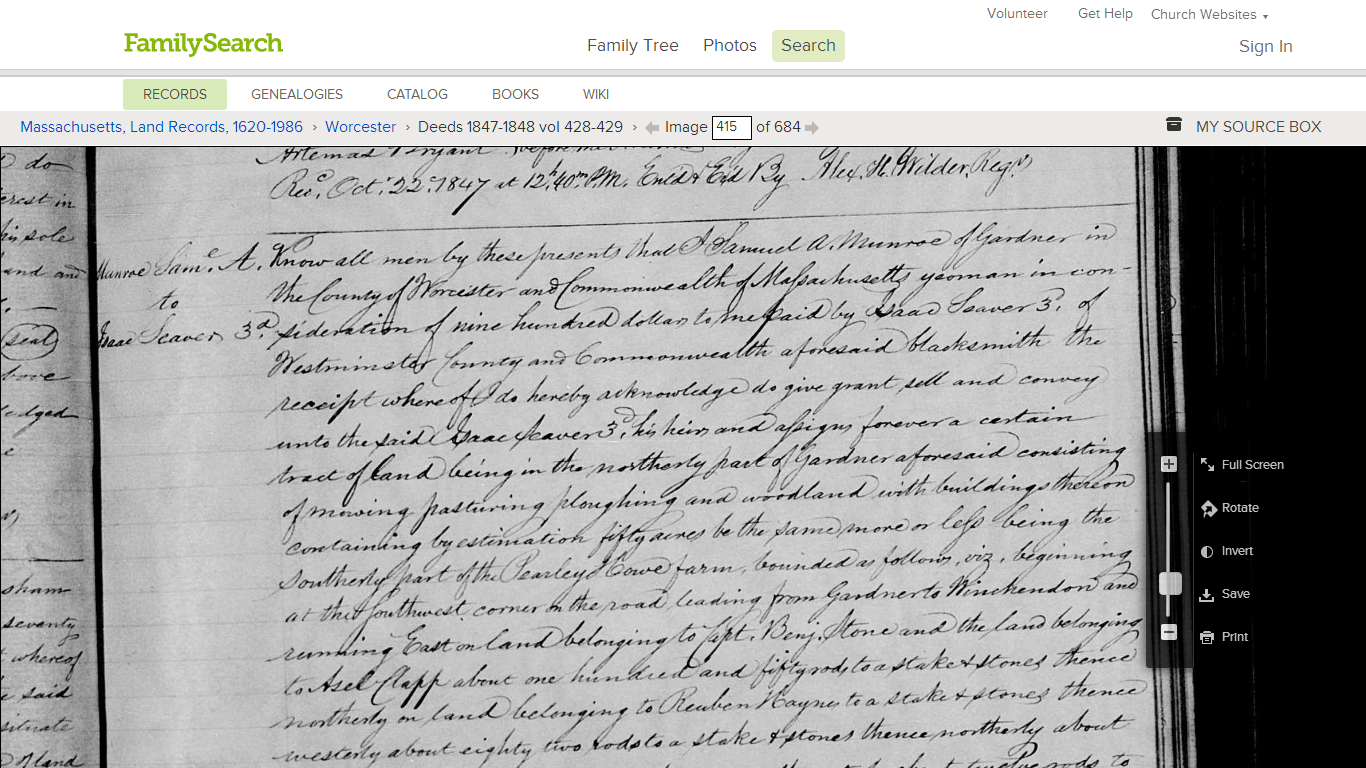 Volunteer Get Help Church Websites
FamilySearch
Family Tree Photos Search
Sign In
RECORDS GENEALOGIES CATALOG BOOKS WIKI
Massachusetts, Land Records, 1620-1986 › Worcester › Deeds 1847-1848 vol 428-429 › Image 415 of 684
MY SOURCE BOX
do
erest in
his sole
and and
seal
bove
ledged
e
sham
seventy
whereof
e said
situate
of land
Artemas Bryant before me
Rec.d Oct.r 22.d 1847 at 12.h 40.m P.M. Ent.d & Ex.d By Alex. H. Wilder, Reg.r
Munroe Sam.l A.
to
Isaac Seaver 3.d
Know all men by these presents that I Samuel A. Munroe of Gardner in
the County of Worcester and Commonwealth of Massachusetts yeoman in con-
sideration of nine hundred dollars to me paid by Isaac Seaver 3.d of
Westminster County and Commonwealth aforesaid blacksmith the
receipt whereof I do hereby acknowledge do give grant sell and convey
unto the said Isaac Seaver 3.d his heirs and assigns forever a certain
tract of land being in the northerly part of Gardner aforesaid consisting
of mowing pasturing ploughing and woodland with buildings thereon
containing by estimation fifty acres be the same more or less being the
southerly part of the Pearley Howe farm, bounded as follows, viz, beginning
at the Southwest corner on the road leading from Gardner to Winchendon and
running East on land belonging to Capt. Benj. Stone and the land belonging
to Asel Clapp about one hundred and fifty rods to a stake & stones thence
northerly on land belonging to Reuben Haynes to a stake & stones thence
westerly about eighty two rods to a stake & stones thence northerly about
twelve rods to
Full Screen
Rotate
Invert
Save
Print